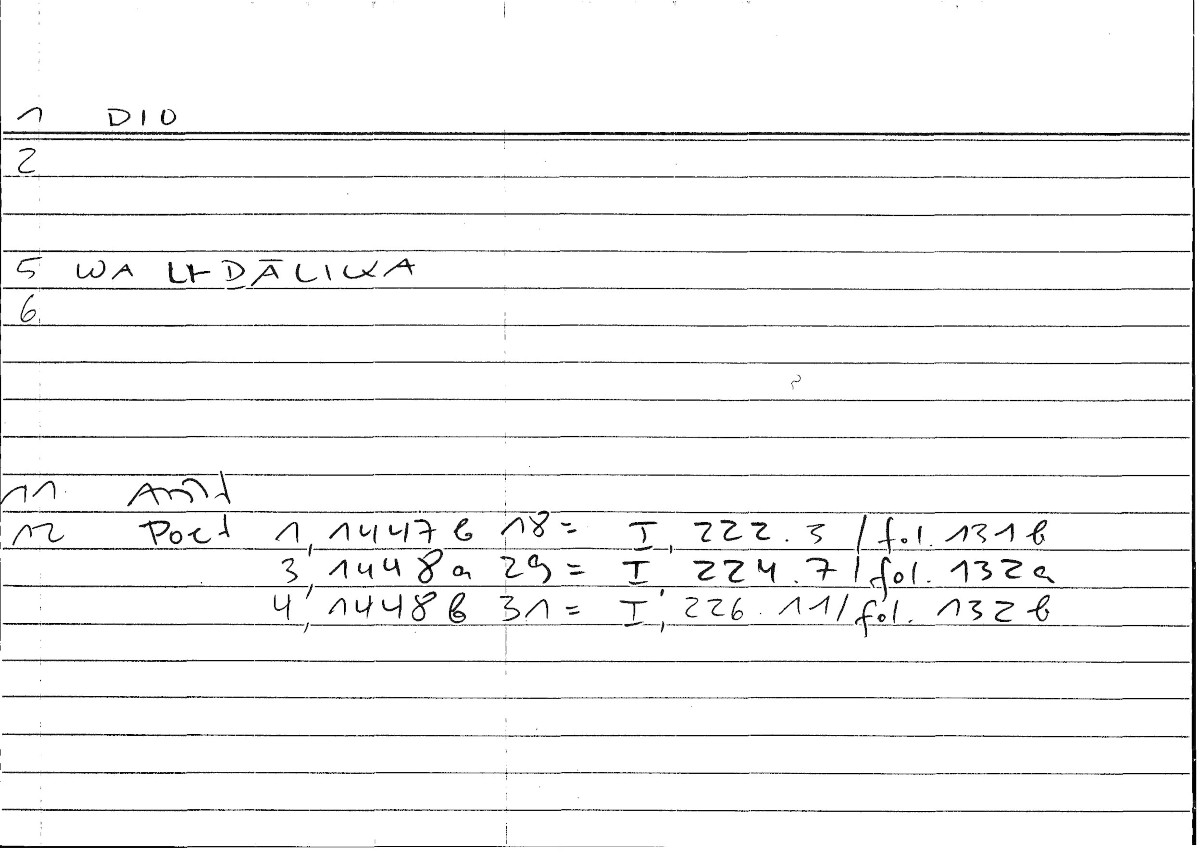 1 DIO
2
5 WA LI-ḎĀLIKA
6.
11. Arist
12 Poet 1, 1447 b 18 = I, 222.3 / fol. 131 b
3, 1448 a 29 = I, 224.7 / fol. 132 a
4, 1448 b 31 = I, 226.11 / fol. 132 b